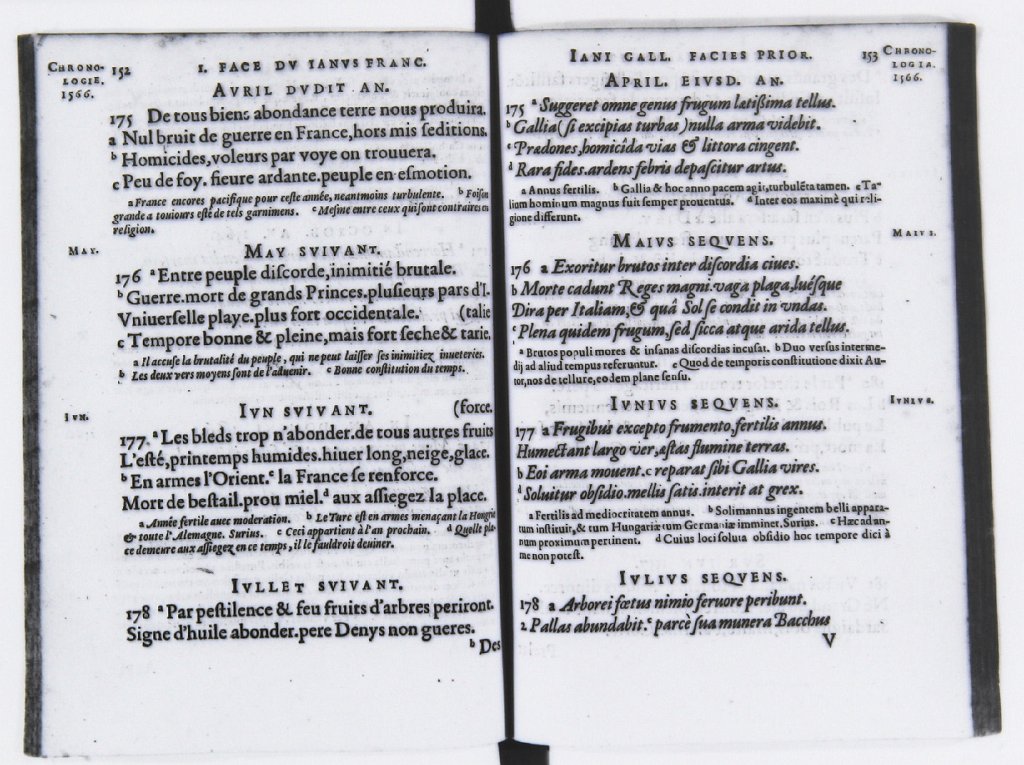 CHRONO-
LOGIE.
1566.
152 I. FACE DV IANVS FRANC.
AVRIL DVDIT AN.
175 De tous biens abondance terre nous produira.
a Nul bruit de guerre en France,hors mis ſeditions.
b Homicides,voleurs par voye on trouuera.
c Peu de foy. fieure ardante.peuple en eſmotion.
a France encores pacifique pour ceſte année, neantmoins turbulente. b Foiſon
grande a touiours eſté de tels garnimens. c Meſme entre ceux qui ſont contraires en
religion.
MAY.
MAY SVIVANT.
176 a Entre peuple diſcorde,inimitié brutale.
b Guerre.mort de grands Princes.pluſieurs pars d'I-
Vniuerſelle playe.plus fort occidentale. (talie
c Tempore bonne & pleine,mais fort ſeche & tarie.
a Il accuſe la brutalité du peuple, qui ne peut laiſſer ſes inimitiez inueterées.
b Les deux vers moyens ſont de l'aduenir. c Bonne conſtitution du temps.
IVN.
IVN SVIVANT. (force.
177. a Les bleds trop n'abonder.de tous autres fruits
L'eſté,printemps humides.hiuer long,neige,glace.
b En armes l'Orient. c la France ſe renforce.
Mort de beſtail.prou miel. d aux aſſiegez la place.
a Année fertile auec moderation. b Le Turc eſt en armes menaçant la Hongrie
& toute l'Alemagne. Surius. c Ceci appartient à l'an prochain. d Quelle pla-
ce demeure aux aſſiegez en ce temps, il le fauldroit deuiner.
IVLLET SVIVANT.
178 a Par peſtilence & feu fruits d'arbres periront.
Signe d'huile abonder.pere Denys non gueres.
b Des
IANI GALL. FACIES PRIOR. 153
CHRONO-
LOGIA.
1566.
APRIL. EIVSD. AN.
175 a Suggeret omne genus frugum latißima tellus.
b Gallia (ſi excipias turbas) nulla arma videbit.
c Prædones,homicida vias & littora cingent.
d Rara fides.ardens febris depaſcitur artus.
a Annus fertilis. b Gallia & hoc anno pacem agit,turbulēta tamen. c Ta-
lium hominum magnus fuit ſemper prouentus. d Inter eos maximè qui reli-
gione differunt.
MAIVS.
MAIVS SEQVENS.
176 a Exoritur brutos inter diſcordia ciues.
b Morte cadunt Reges magni.vaga plaga,luéſque
Dira per Italiam,& quâ Sol ſe condit in vndas.
c Plena quidem frugum,ſed ſicca atque arida tellus.
a Brutos populi mores & inſanas diſcordias incuſat. b Duo verſus interme-
dij ad aliud tempus referuntur. c Quod de temporis conſtitutione dixit Au-
tor,nos de tellure,eodem planè ſenſu.
IVNIVS.
IVNIVS SEQVENS.
177 a Frugibus excepto frumento,fertilis annus.
Humectant largo ver,æſtas flumine terras.
b Eoi arma mouent. c reparat ſibi Gallia vires.
d Soluitur obſidio.mellis ſatis.interit at grex.
a Fertilis ad mediocritatem annus. b Solimannus ingentem belli appara-
tum inſtituit,& tum Hungariæ tum Germaniæ imminet.Surius. c Hæc ad an-
num proximum pertinent. d Cuius loci ſoluta obſidio hoc tempore dici à
me non poteſt.
IVLIVS SEQVENS.
178 a Arborei fœtus nimio feruore peribunt.
2 Pallas abundabit. c parcè ſua munera Bacchus
V